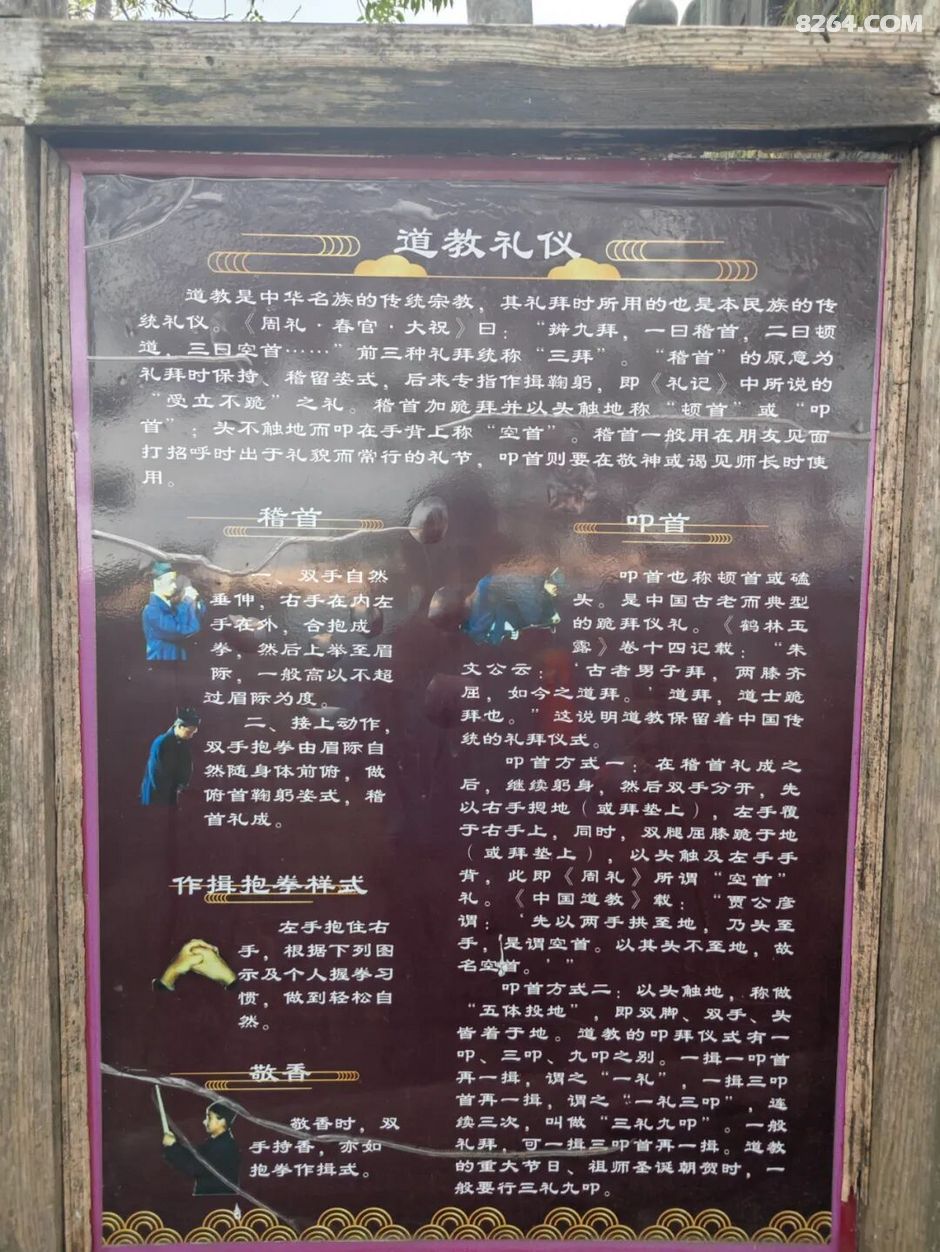 8264.COM
道教礼仪
道教是中华名族的传统宗教，其礼拜时所用的也是本民族的传
统礼仪。《周礼·春官·大祝》曰：“辨九拜，一曰稽首，二曰顿
道，三曰空首……”前三种礼拜统称“三拜”。“稽首”的原意为
礼拜时保持、稽留姿式，后来专指作揖鞠躬，即《礼记》中所说的
“受立不跪”之礼。稽首加跪拜并以头触地称“顿首”或“叩
首”；头不触地而叩在手背上称“空首”。稽首一般用在朋友见面
打招呼时出于礼貌而常行的礼节，叩首则要在敬神或谒见师长时使
用。
稽首
一、双手自然
垂伸，右手在内左
手在外，合抱成
拳，然后上举至眉
际，一般高以不超
过眉际为度。
二、接上动作，
双手抱拳由眉际自
然随身体前俯，做
俯首鞠躬姿式，稽
首礼成。
作揖抱拳样式
左手抱住右
手，根据下列图
示及个人握拳习
惯，做到轻松自
然。
敬香
敬香时，双
手持香，亦如
抱拳作揖式。
叩首
叩首也称顿首或磕
头。是中国古老而典型
的跪拜仪礼。《鹤林玉
露》卷十四记载：“朱
文公云：‘古者男子拜，两膝齐
屈，如今之道拜。’道拜，道士跪
拜也。”这说明道教保留着中国传
统的礼拜仪式。
叩首方式一：在稽首礼成之
后，继续躬身，然后双手分开，先
以右手摁地（或拜垫上），左手覆
于右手上，同时，双腿屈膝跪于地
（或拜垫上），以头触及左手手
背，此即《周礼》所谓“空首”
礼。《中国道教》载：“贾公彦
谓：‘先以两手拱至地，乃头至
手，是谓空首。以其头不至地，故
名空首。’”
叩首方式二：以头触地，称做
“五体投地”，即双脚、双手、头
皆着于地。道教的叩拜仪式有一
叩、三叩、九叩之别。一揖一叩首
再一揖，谓之“一礼”，一揖三叩
首再一揖，谓之“一礼三叩”，连
续三次，叫做“三礼九叩”。一般
礼拜，可一揖三叩首再一揖。道教
的重大节日、祖师圣诞朝贺时，一
般要行三礼九叩。